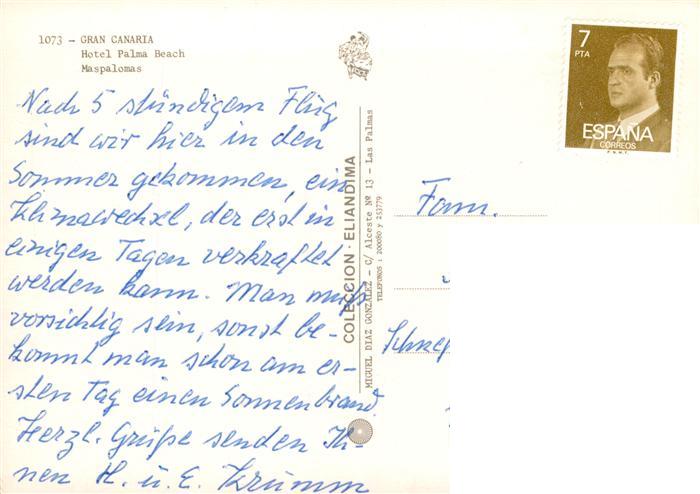 1073 - GRAN CANARIA
Hotel Palma Beach
Maspalomas
Nach 5 stündigem Flug
sind wir hier in den
Sommer gekommen, ein
Klimawechsel, der erst in
einigen Tagen verkraftet
werden kann. Man muß
vorsichtig sein, sonst be-
kommt man schon am er-
sten Tag einen Sonnenbrand.
Herzl. Grüße senden Ih-
nen H. u. E. Krumm
COLECCION · ELIANDIMA
MIGUEL DIAZ GONZALEZ - C/ Alceste Nº 13 - Las Palmas
TELEFONOS : 200080 y 253779
7
PTA
ESPAÑA
CORREOS
F.N.M.T.
Fam.